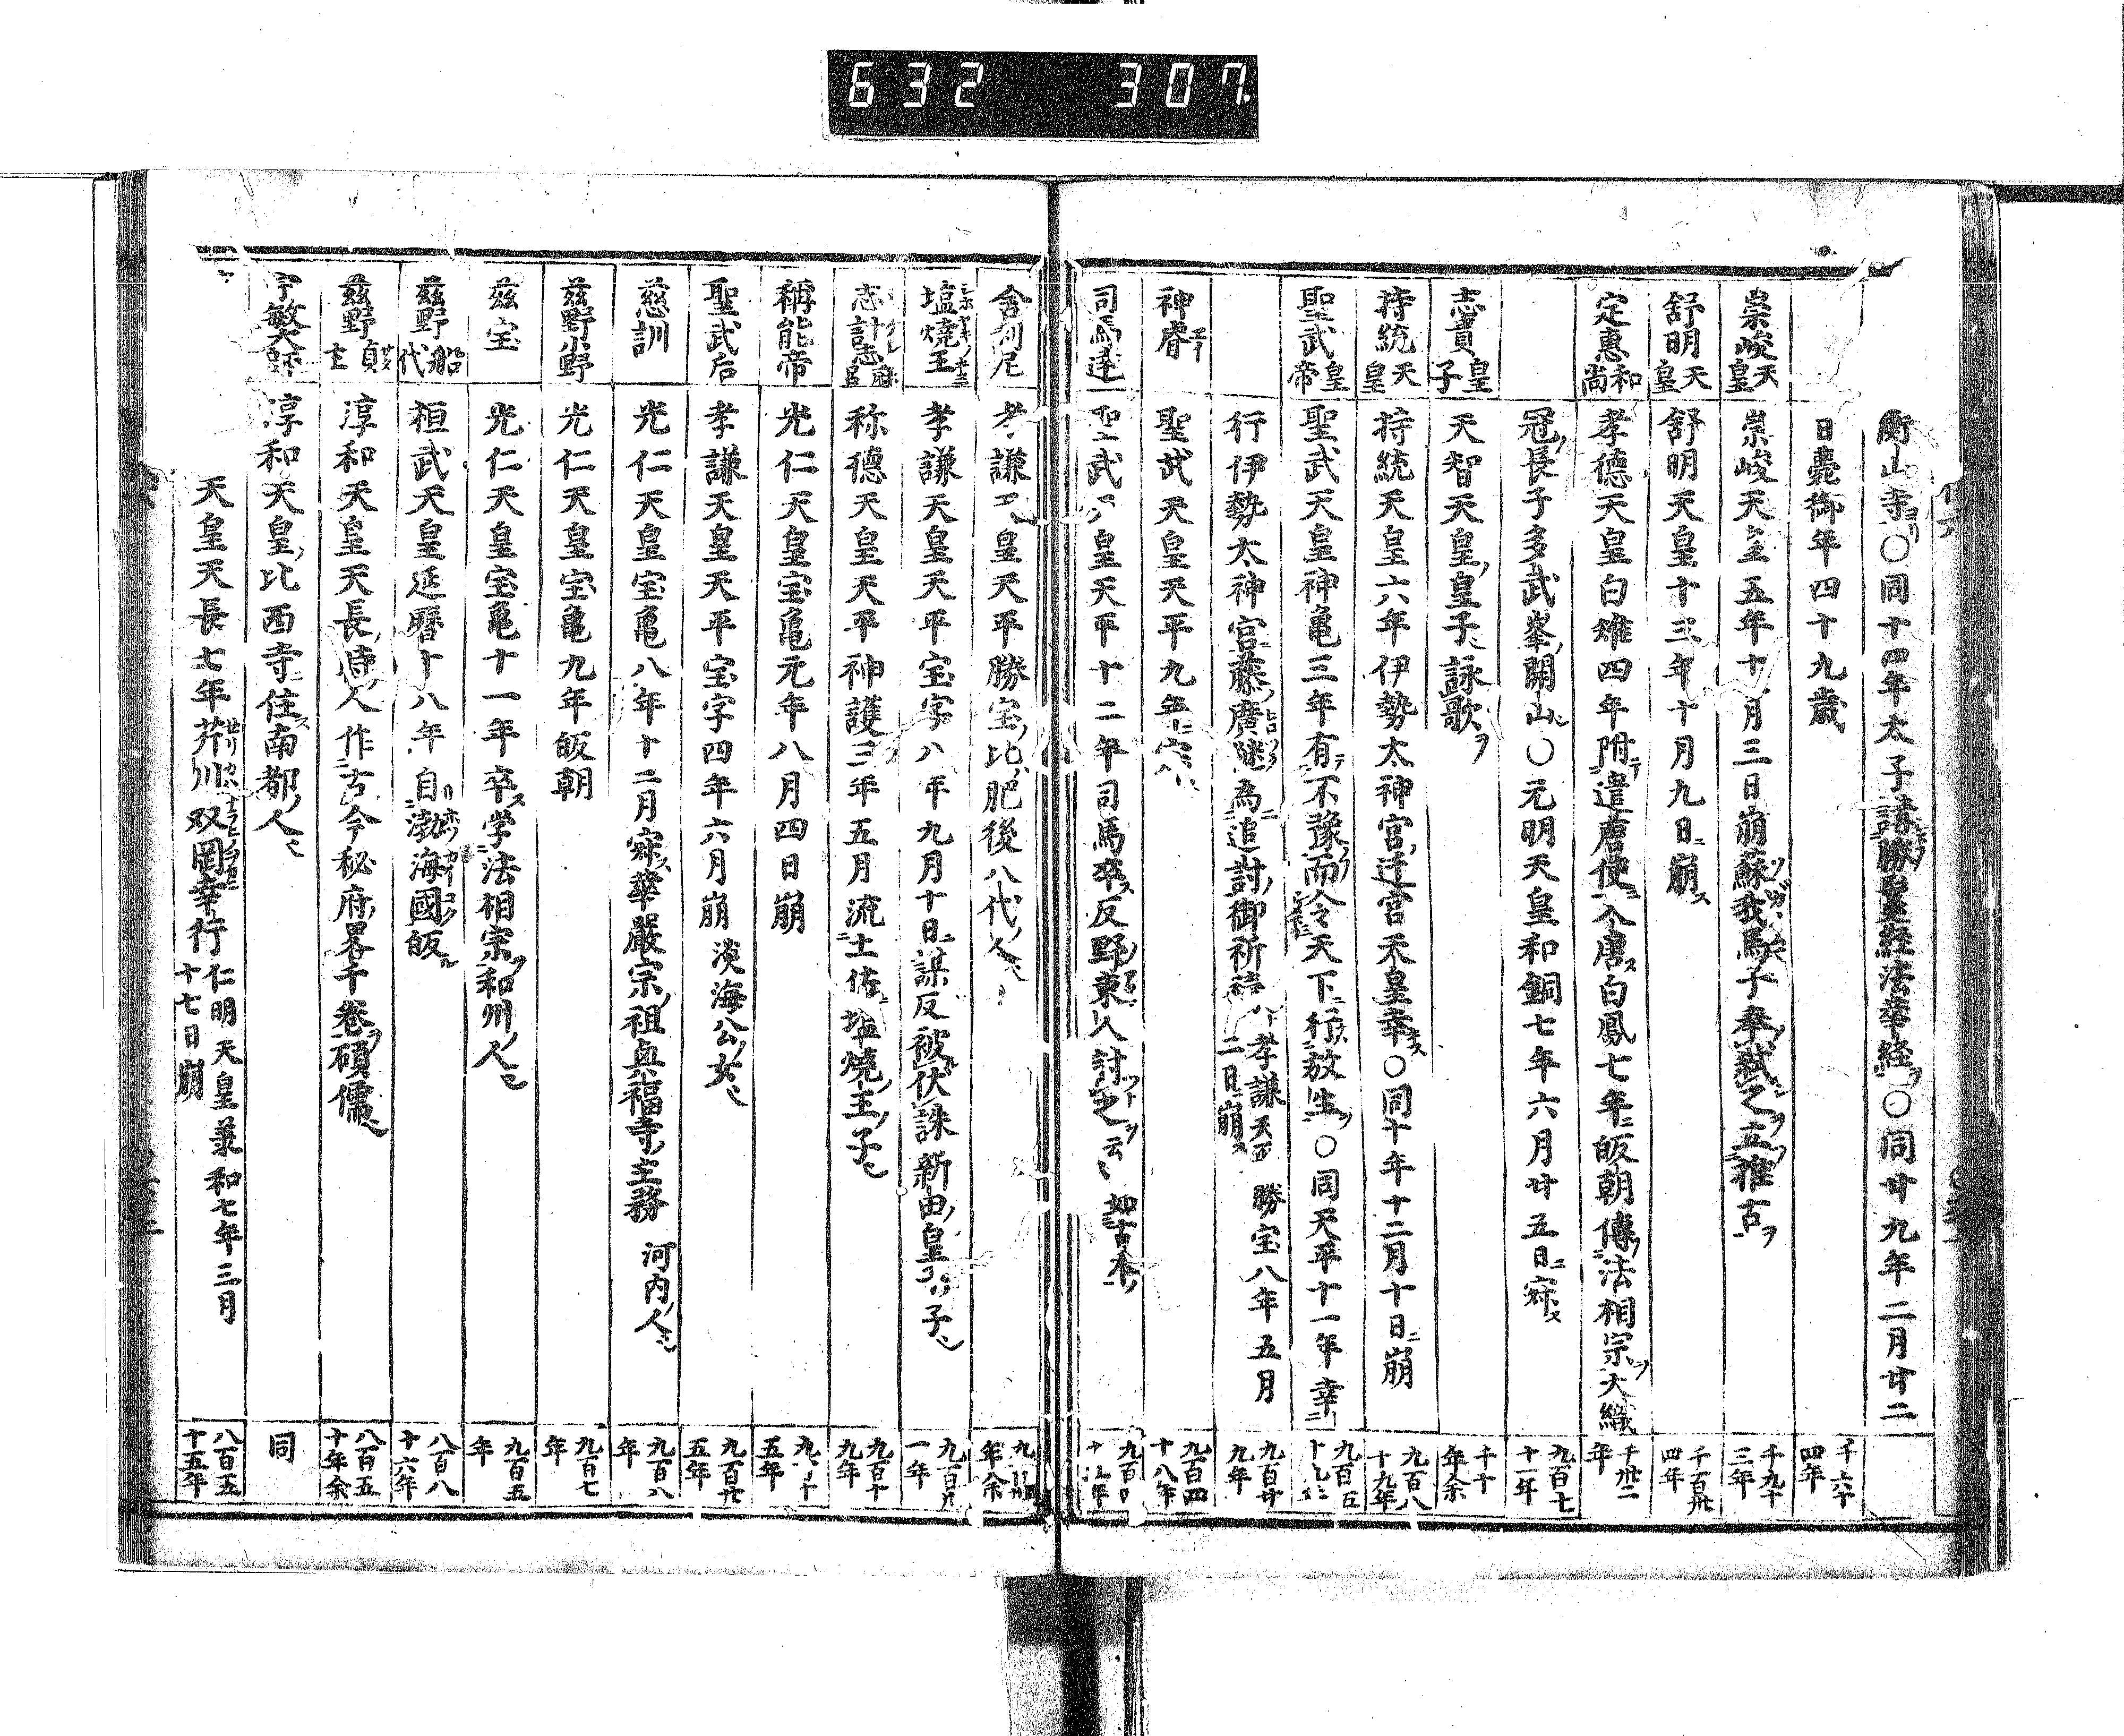 632 307.
衡山寺ヨリ〇同十四年太子講勝鬘経法華経ヲ〇同廿九年二月廿二
日薨御年四十九歳 千六十四年
崇峻天皇 崇峻天皇五年十一月三日崩蘇我馬子奉弑之立推古ヲ 千九十三年
舒明天皇 舒明天皇十三年十月九日ニ崩ス 千百卅四年
定惠和尚 孝德天皇白雉四年附遣唐使ニ入唐ス白鳳七年ニ皈朝傳法相宗ヲ大織 千卅二年
冠ノ長子多武峯ノ開山〇元明天皇和銅七年六月廿五日ニ寂ス 九百七十一年
志貴皇子 天智天皇ノ皇子詠歌ヲ 千十年余
持統天皇 持統天皇六年伊勢太神宮ノ迁宮天皇幸〇同十年十二月十日ニ崩 九百八十九年
聖武皇帝 聖武天皇神亀三年有不豫而令天下行放生ヲ〇同天平十一年幸
行伊勢太神宮藤廣継為追討ノ御祈 孝謙天皇勝宝八年五月二日ニ崩ス 九百廿九年
神睿 聖武天皇天平九年 九百四十八年
司馬達 聖武天皇天平十二年司馬卒ス反野東人討之ヲ云 如古本
舎利尼 孝謙天皇天平勝宝ノ比肥後八代ノ人
塩燒王 孝謙天皇天平宝字八年九月十日ニ謀反被伏誅新田皇子 九百廿一年
志計志麻呂 称德天皇天平神護三年五月流土佐ニ塩燒王ノ子 九百十九年
稱能帝 光仁天皇宝亀元年八月四日崩 九百十五年
聖武后 孝謙天皇天平宝字四年六月崩 淡海公ノ女 九百廿五年
慈訓 光仁天皇宝亀八年十二月寂ス華嚴宗ノ祖興福寺ノ主務 河内ノ人 九百八年
茲野小野 光仁天皇宝亀九年皈朝 九百七年
茲宝 光仁天皇宝亀十一年卒ス学法相宗ヲ和州ノ人 九百五年
茲野船代 桓武天皇延暦十八年自渤海國皈 八百八十六年
茲野貞主 淳和天皇天長ノ時ノ人作古今秘府畧千卷ヲ碩儒 八百五十年余
守敏大師 淳和天皇ノ比西寺住ス南都ノ人 同
天皇天長七年芹川双岡幸行 仁明天皇承和七年三月十七日崩 八百五十五年